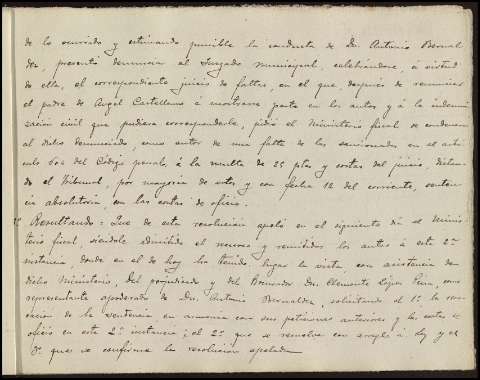 de lo ocurrido y estimando punible la conducta de Dn. Antonio Bernal
dez, presentó denuncia al Juzgado municipal, celebrándose, á virtud
de ella, el correspondiente juicio de faltas, en el que, después de renunciar
el padre de Angel Castellano á mostrarse parte en los autos y á la indemni
zación civil que pudiera corresponderle, pidió el Ministerio fiscal se condenara
al dicho denunciado, como autor de una falta de las sancionadas en el artí
culo 602 del Código penal, á la multa de 25 ptas y costas del juicio, dictan
do el Tribunal, por mayoría de votos y con fecha 12 del corriente, senten
cia absolutoria, con las costas de oficio.
Resultando: Que de esta resolución apeló en el siguiente día el Minis
terio fiscal, siéndole admitido el recurso y remitidos los autos á esta 2ª
instancia, donde en el de hoy ha tenido lugar la vista, con asistencia de
dicho Ministerio, del perjudicado y del Procurador Dn. Clemente López, como
representante apoderado de Dn. Antonio, solicitando el 1º la revo
cación de la sentencia en armonía con sus peticiones anteriores y las costas de
oficio en esta 2ª instancia; el 2º que se resuelva con arreglo á Ley y el
3º que se confirme la resolución apelada